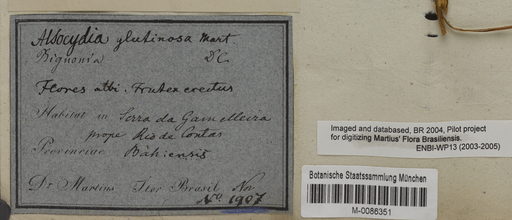 Alsocydia glutinosa Mart.
Bignonia DC.
Flores albi. Frutex erectus
Habitat in Serra da Gamelleira
prope Rio de Contas
Provinciae Bahiensis
Dr Martius Iter Brasil No
No. 1907
Imaged and databased, BR 2004, Pilot project
for digitizing Martius' Flora Brasiliensis.
ENBI-WP13 (2003-2005)
Botanische Staatssammlung München
M-0086351